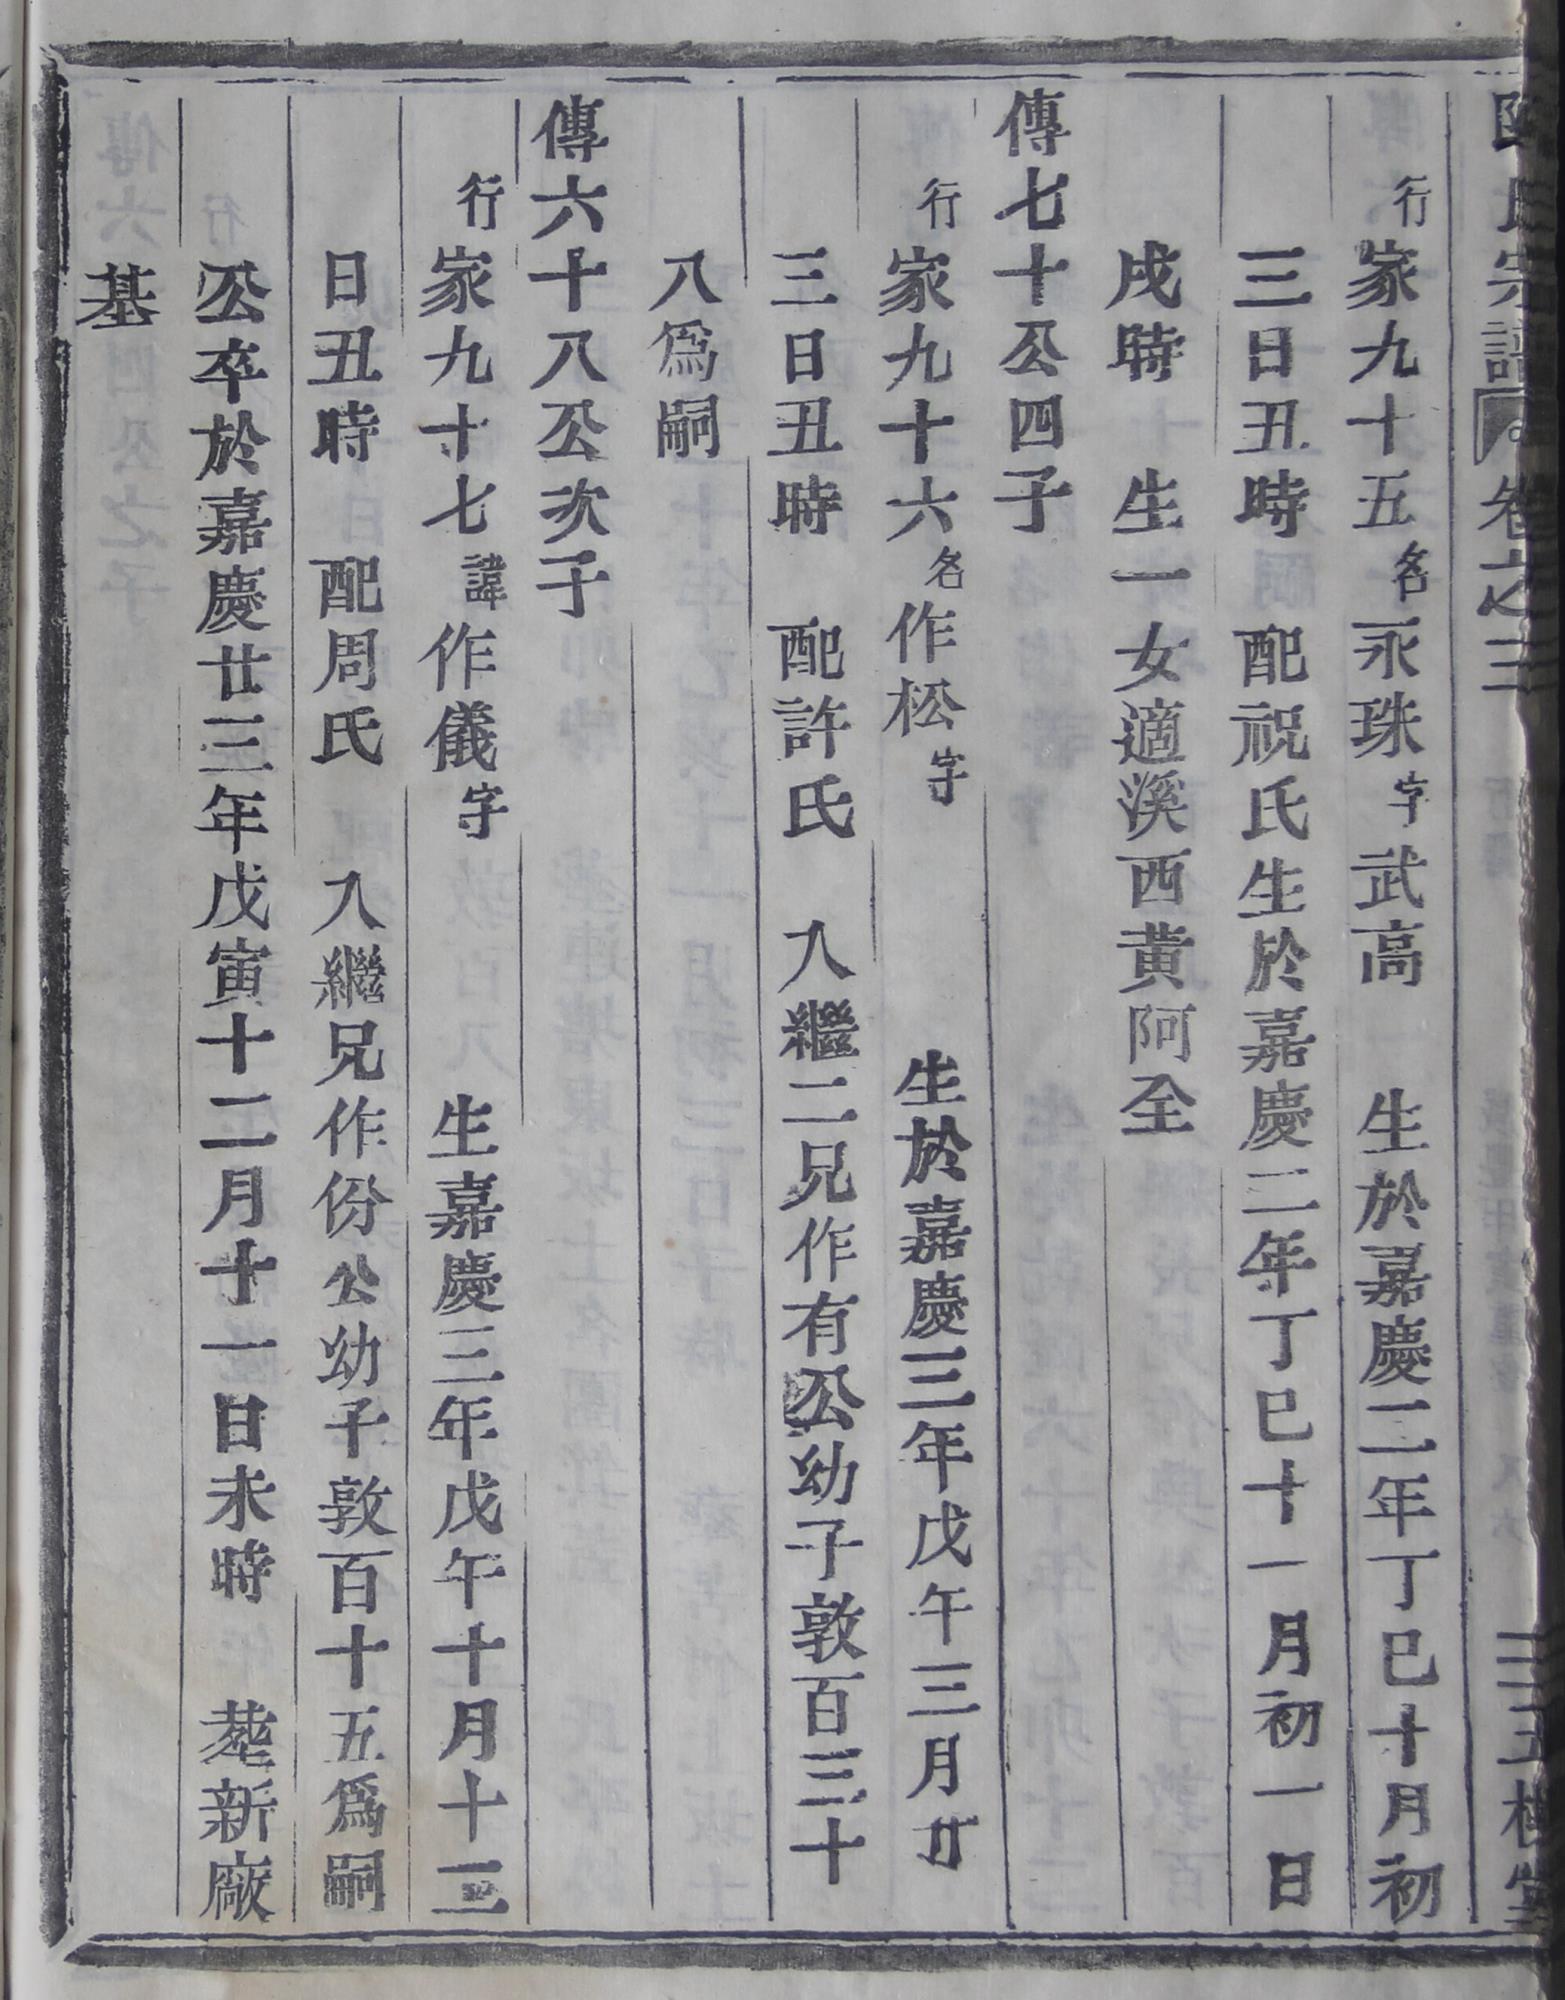 氏宗譜 卷之三 三五
行家九十五名永珠字武高 生於嘉慶二年丁巳十月初
三日丑時 配祝氏生於嘉慶二年丁巳十一月初一日
戌時 生一女適溪西黄阿全
傳七十公四子
行家九十六名作松字 生於嘉慶三年戊午三月廿
三日丑時 配許氏 入繼二兄作有公幼子敦百三十
八爲嗣
傳六十八公次子
行家九十七諱作儀字 生嘉慶三年戊午十月十三
日丑時 配周氏 入繼兄作份公幼子敦百十五爲嗣
公卒於嘉慶廿三年戊寅十二月十一日未時 塟新廠
基